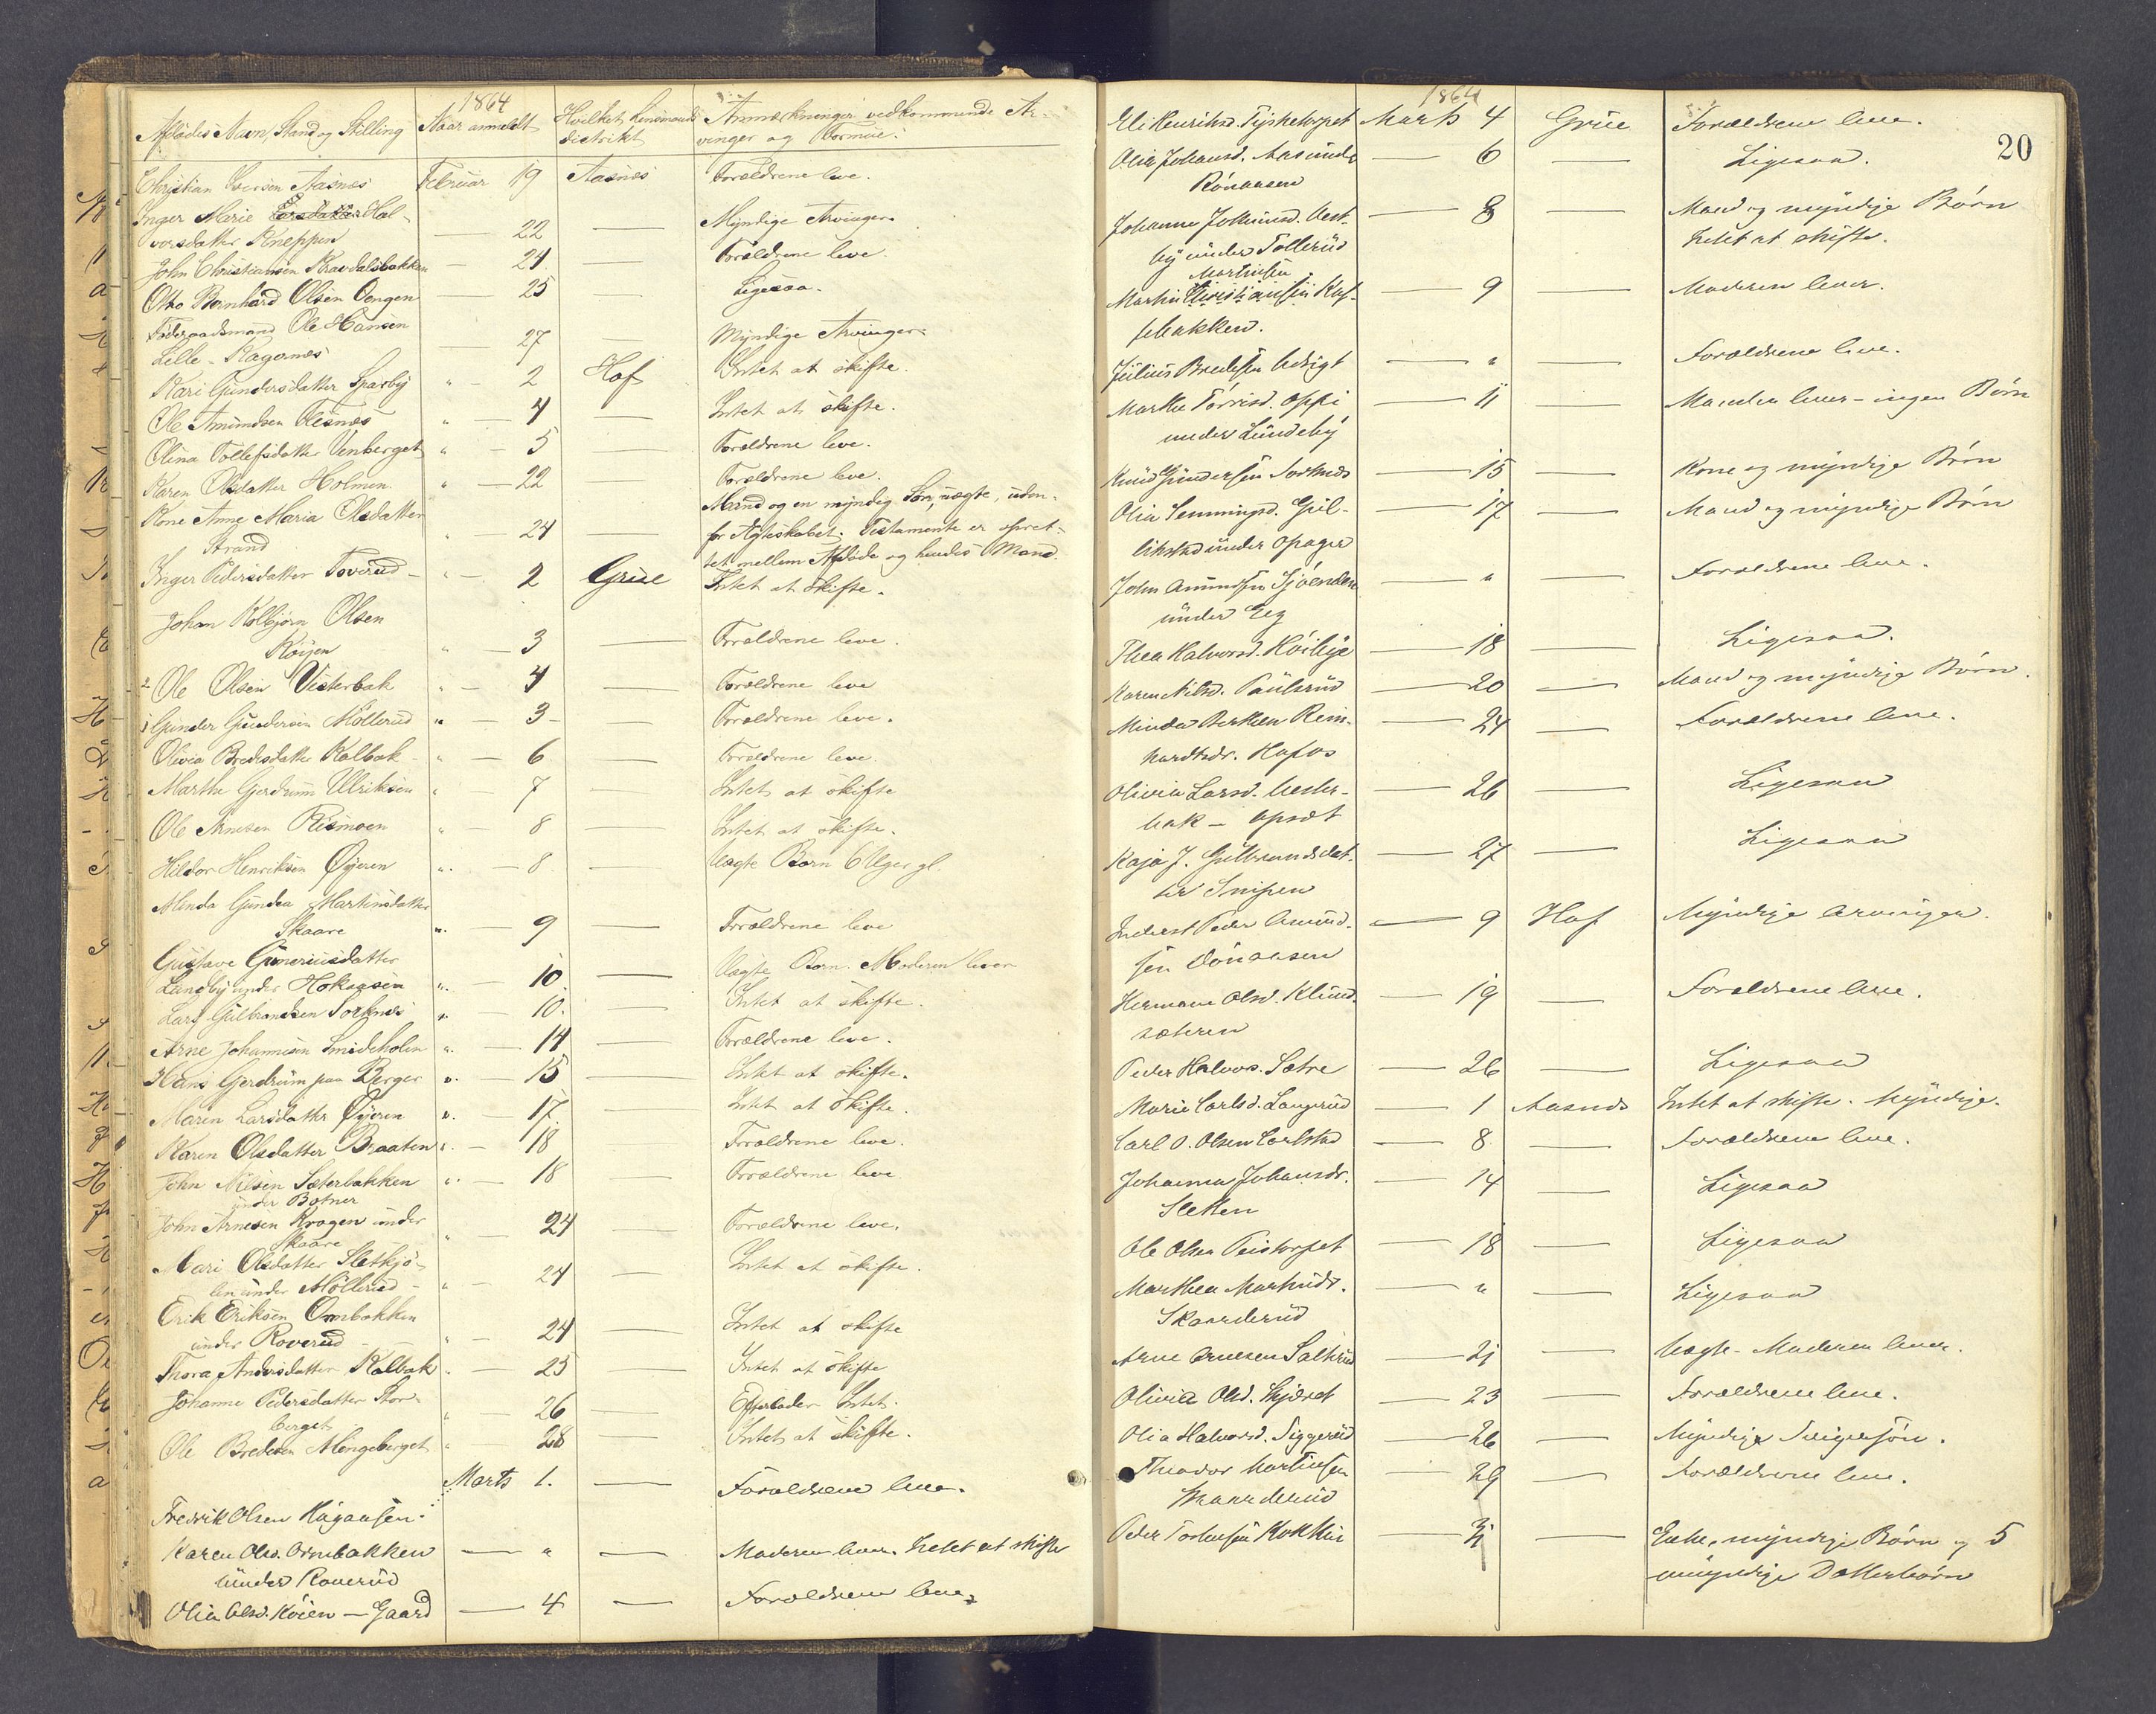 1864
Afdødes Navn, Stand og Stilling Naar anmeldt Hvilket Lensmands Anmærkninger vedkommende Ar-
distrikt vinger og Formue.
Christian Iversen Aasnæs Februar 19 Aasnæs Forældrene leve.
Inger Marie Larsdatter Hal-
vorsdatter Kneppen — 22 — Myndige Arvinger.
John Christiansen — 24 — Forældrene leve.
Otto Bernhard Olsen Oengen — 25 — Ligesaa.
Føderaadsmand Ole Hansen
Lille-Kagnæs — 27 — Myndige Arvinger.
Kari Gundersdatter Sparby " — 2 Hof Intet at skifte.
Ole Amundsen Flisnæs " — 4 — Intet at skifte.
Olina Tollefsdatter Venberget " — 5 — Forældrene leve.
Karen Olsdatter Holmen " — 22 — Forældrene leve.
Kone Anne Maria Olsdatter Mand og en myndig Søn, uægte, uden-
Strand " — 24 — for Ægteskabet. Testamente er opret-
tet mellem Afdøde og hendes Mand.
Inger Pedersdatter Toverud " — 2 Grue Intet at skifte.
Johan Kolbjørn Olsen
Roijen " — 3 — Forældrene leve.
2 Ole Olsen Vesterbak " — 4 — Forældrene leve
1 Gunder Gundersen Møllerud " — 3 — Forældrene leve.
Olivia Bredesdatter Kalbak " — 6 — Forældrene leve.
Marthe Gjerdrum Ulriksen " — 7 — Intet at skifte
Ole Arnesen Rismoen " — 8 — Intet at skifte.
Hildor Henriksen Øyeren " — 8 — Uægte Barn 6 Uger gl.
Minda Gundea Martinsdatter
Skaare " — 9 — Forældrene leve
Gustave Guneriusdatter
Lundby under Hokaasen " — 10. — Uægte Barn. Moderen lever
Lars Gulbrandsen Sorknæs " — 10. — Intet at skifte.
Arne Johannesen Smideholen " — 14 — Forældrene leve.
Hans Gjerdrum paa Berger " — 15 — Intet at skifte.
Maren Larsdatter Øyeren " — 17 — Intet at skifte.
Karen Olsdatter Braaten " — 18 — Forældrene leve.
John Nilsen Sæterbakken " — 18 — Forældrene leve
under Botner
John Arnesen Kragen under
Skaare " — 24 — Forældrene leve.
Mari Olsdatter Sletkjø-
len under Møllerud — " — 24 — Intet at skifte.
Erik Eriksen Ornbakken
under Roverud — " — 24 — Intet at skifte
Thora Andersdatter Kalbak " — 25 — Intet at skifte
Johanne Pedersdatter Stor-
berget " — 26 — Efterlader Intet.
Ole Bredesen Mengeberget " — 28 — Intet at skifte.
Marts 1. — Forældrene leve.
Fredrik Olsen Hagaasen.
Karen Olsd. Ornbakken — " — Moderen lever. Intet at skifte
under Roverud
Olia Olsd. Køien — Gaard — 4 — Forældrene leve.
1864
20
Eli Henriksd. Tysketorpet Marts 4 Grue Forældrene leve.
Olia Johansd. Aasunde — 6 — Ligesaa.
Rønaasen
Johanne Johannsd. Vest- — 8 — Mand og myndige Børn
by under Tollerud Intet at skifte.
Martinsen
Martin Christiansen Kas- — 9 — Moderen lever.
sebakken.
Julius Bredesen Udsigt — " — Forældrene leve.
Marthe Torrisd. Oppi — 11 — Manden lever - ingen Børn
under Lundeby
Knud Gundersen Sorknæs — 15 — Kone og myndige Børn
Olia Semmingsd. Gul- — 17 — Mand og myndige Børn
likstad under Opager
John Amundsen Tjoenden — " — Forældrene leve.
under Eeg
Thea Halvorsd. Høibye — 18 — Ligesaa.
Karen Nilsd. Paulsrud — 20 — Mand og myndige Børn.
Minda Berthea Rein- — 24 — Forældrene leve.
hardtsdr. Hafos
Olivia Larsd. Vester- — 26 — Ligesaa
bak - Opsæt
Kaja J. Gulbrandsdat- — 27 — Ligesaa
ter Snipen
Inderst Peder Amund- — 9 Hof Myndige Arvinger.
sen Dónaasen
Hermane Olsd. Klund- — 19 — Forældrene leve.
sæteren
Peder Halvors. Sætre — 26 — Ligesaa
Marie Carlsd. Langerud — 1 Aasnæs Intet at skifte. Myndige.
Carl O. Olsen Carlstad — 8 — Forældrene leve.
Johanna Johansdr. — 14 — Ligesaa
Sletten
Ole Olsen Peistorpet — 18 — Ligesaa
Marthea Martinsdr. — " — Ligesaa
Skaarderud
Arne Arnesen Salterud — 21 — Uægte - Moderen lever.
Olivia Olsd. Kjæret — 23 — Forældrene leve.
Olia Halvorsd. Siggerud — 26 — Myndige Svigersøn.
Theodor Martinsen — 29 — Forældrene leve.
Skaarderud
Peder Torkelsen Kokkin — 31 — Enke, myndige Børn og 5
umyndige Datterbørn